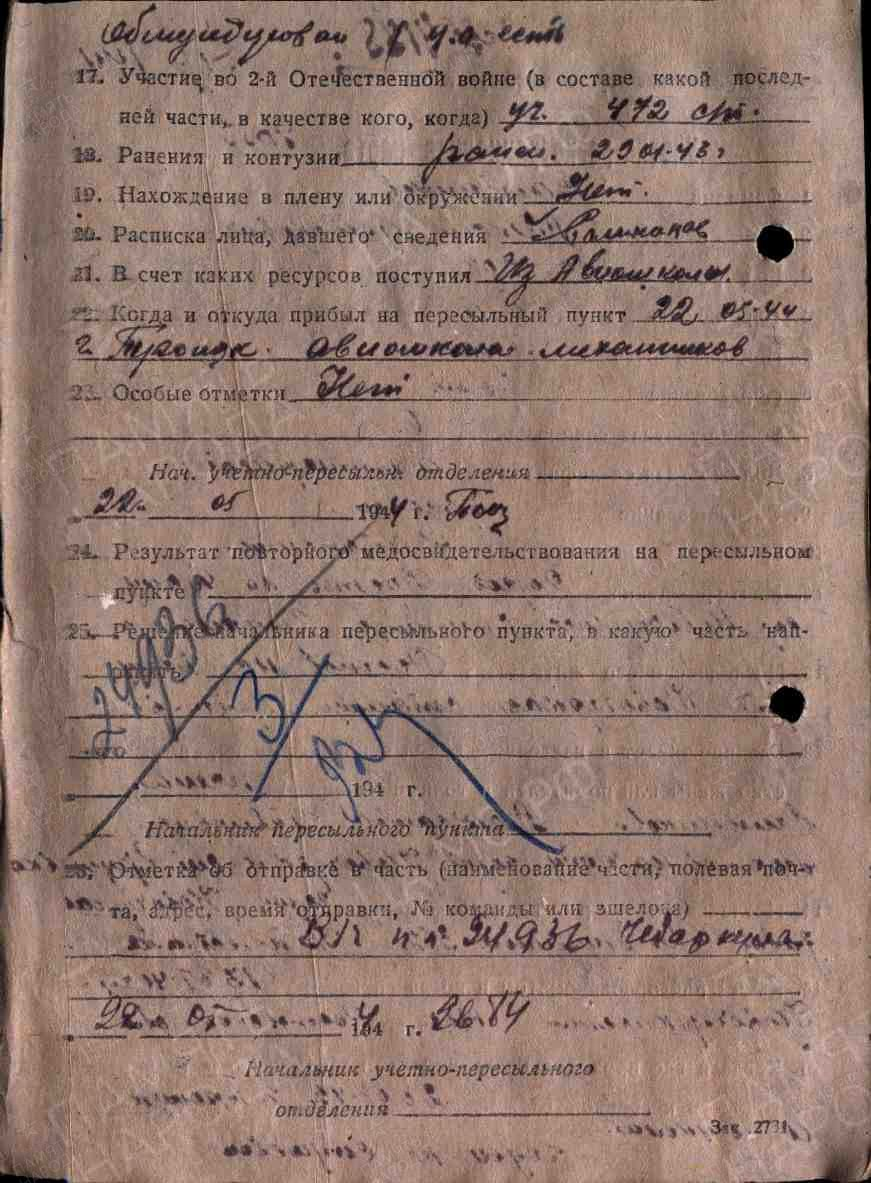 Обмундирован есть
17. Участие во 2-й Отечественной войне (в составе какой послед-
ней части, в качестве кого, когда) уч. 472 сп.
18. Ранения и контузии ранен. 29 01.43 г
19. Нахождение в плену или окружении Нет.
20. Расписка лица, давшего сведения
21. В счет каких ресурсов поступил Из Авиошколы.
22. Когда и откуда прибыл на пересыльный пункт 22 05.44
г. Троицк. авиошкола механиков
23. Особые отметки Нет
Нач. учетно-пересыльн. отделения
22. 05 1944 г.
24. Результат повторного медосвидетельствования на пересыльном
пункте
25. Решение начальника пересыльного пункта, в какую часть нап-
24936
3
194 г.
Начальник пересыльного пункта
26. Отметка об отправке в часть (наименование части, полевая поч-
та, адрес, время отправки, № команды или эшелона)
В/ч п.п. 24936. Чебаркуль.
22 05 1944 г.
Начальник учетно-пересыльного
отделения
Зак. 2731